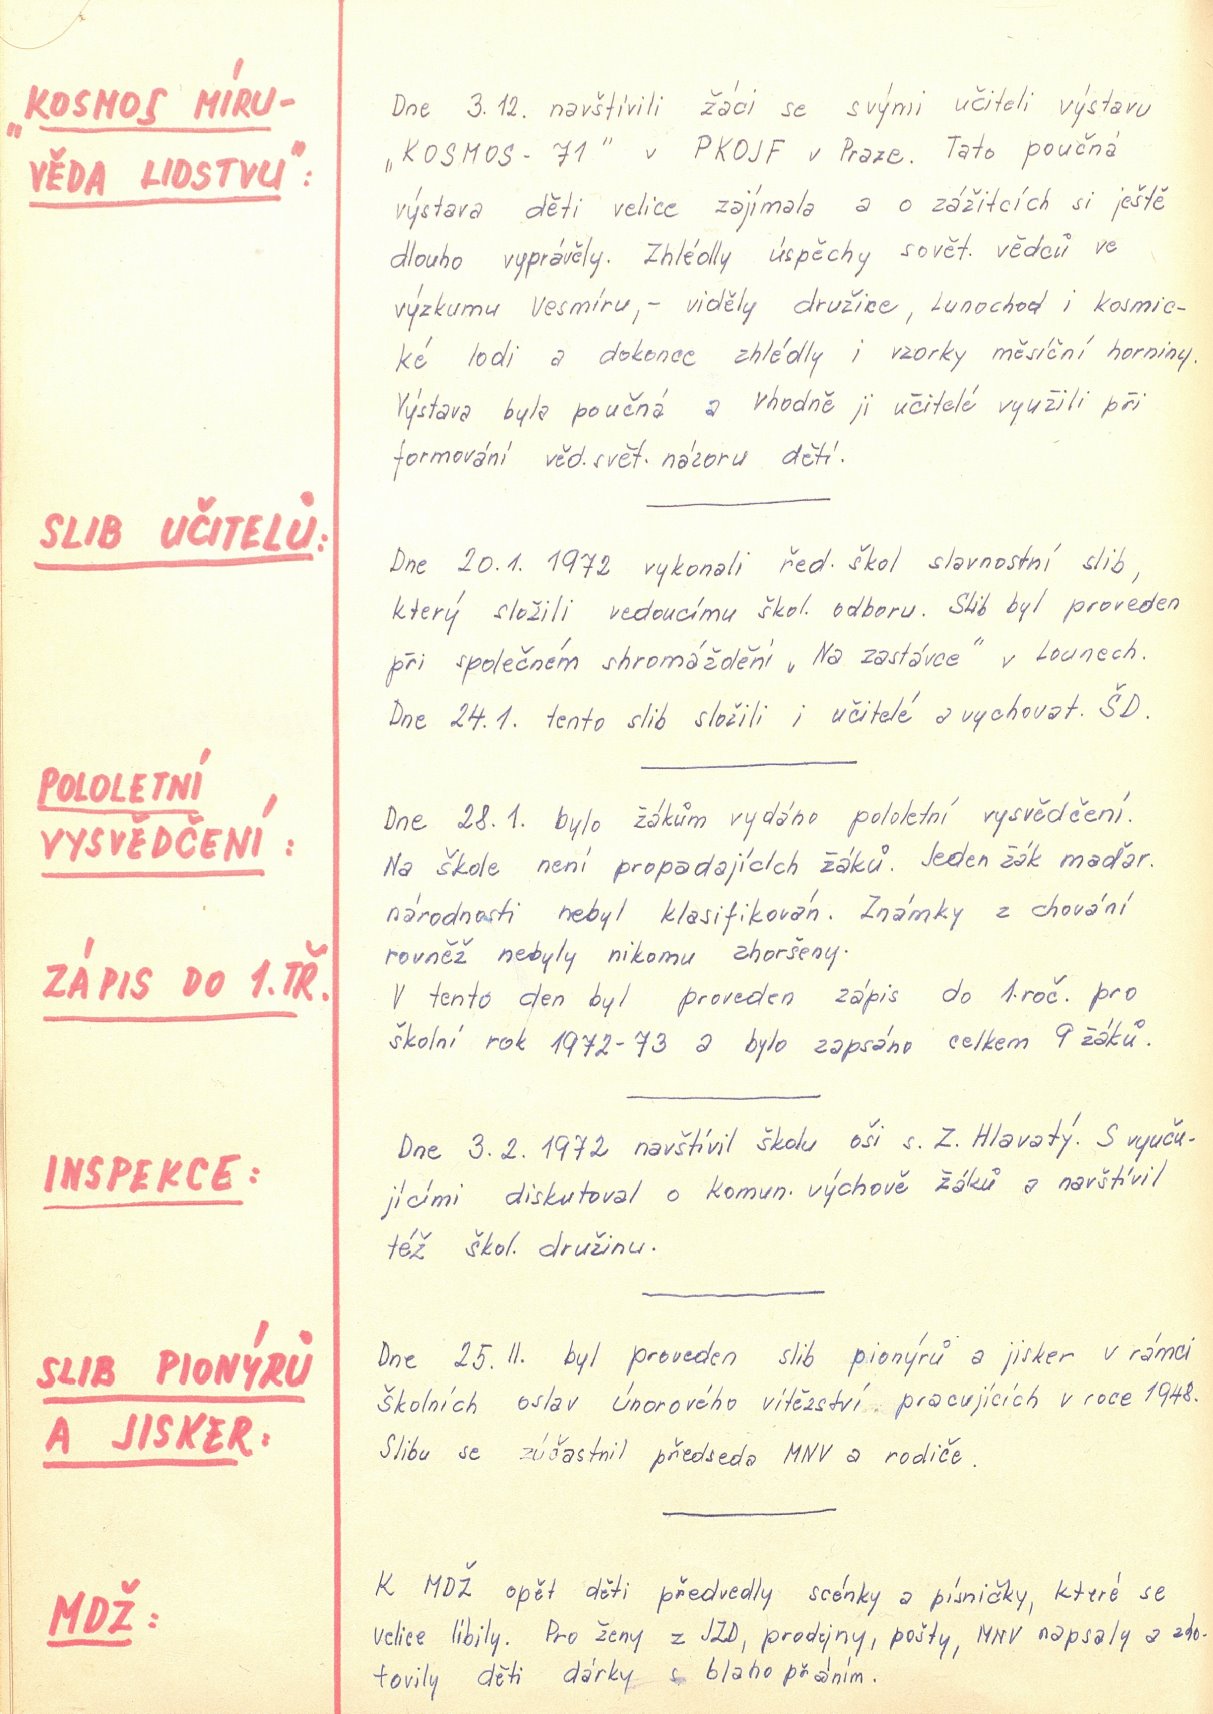 „KOSMOS MÍRU-
VĚDA LIDSTVU":
Dne 3.12. navštívili žáci se svými učiteli výstavu
„KOSMOS-71" v PKOJF v Praze. Tato poučná
výstava děti velice zajímala a o zážitcích si ještě
dlouho vyprávěly. Zhlédly úspěchy sovět. vědců ve
výzkumu Vesmíru,- viděly družice, Lunochod i kosmic-
ké lodi a dokonce zhlédly i vzorky měsíční horniny.
Výstava byla poučná a vhodně ji učitelé využili při
formování věd. svět. názoru dětí.
SLIB UČITELŮ:
Dne 20.1. 1972 vykonali řed. škol slavnostní slib,
který složili vedoucímu škol. odboru. Slib byl proveden
při společném shromáždění „Na zastávce" v Lounech.
Dne 24.1. tento slib složili i učitelé a vychovat. ŠD.
POLOLETNÍ
VYSVĚDČENÍ:
Dne 28.1. bylo žákům vydáno pololetní vysvědčení.
Na škole není propadajících žáků. Jeden žák maďar.
národnosti nebyl klasifikován. Známky z chování
rovněž nebyly nikomu zhoršeny.
ZÁPIS DO 1.TŘ.
V tento den byl proveden zápis do 1.roč. pro
školní rok 1972-73 a bylo zapsáno celkem 9 žáků.
INSPEKCE:
Dne 3.2. 1972 navštívil školu oši s. Z. Hlavatý. S vyuču-
jícími diskutoval o komun. výchově žáků a navštívil
též škol. družinu.
SLIB PIONÝRŮ
A JISKER:
Dne 25.II. byl proveden slib pionýrů a jisker v rámci
školních oslav Únorového vítězství pracujících v roce 1948.
Slibu se zúčastnil předseda MNV a rodiče.
MDŽ:
K MDŽ opět děti předvedly scénky a písničky, které se
velice líbily. Pro ženy z JZD, prodejny, pošty, MNV napsaly a zho-
tovily děti dárky s blahopřáním.